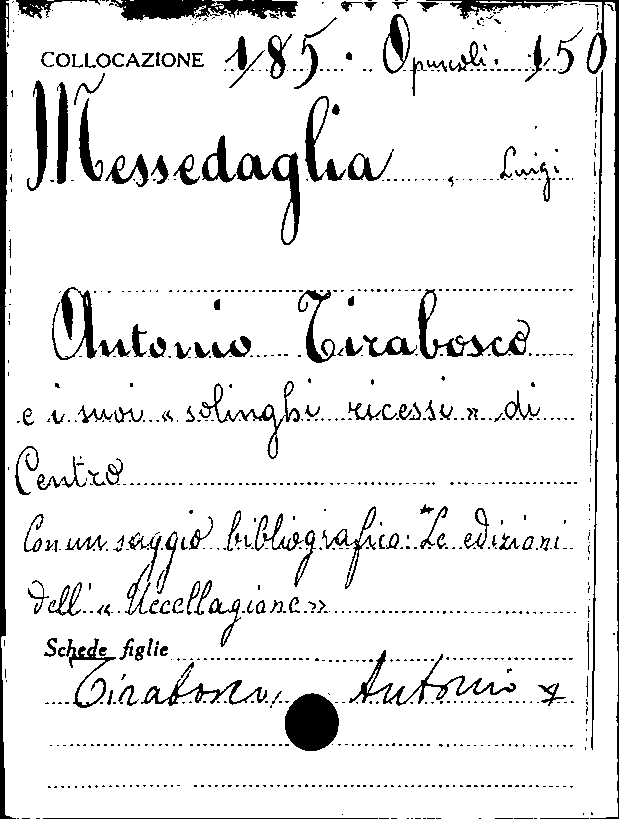 COLLOCAZIONE 185. Opuscoli. 150
Messedaglia, Luigi
Antonio Tirabosco
e i suoi « solinghi ricessi » di
Centro
Con un saggio bibliografico: "Le edizioni
dell' « Uccellagione »
Schede figlie
Tirabosco, Antonio